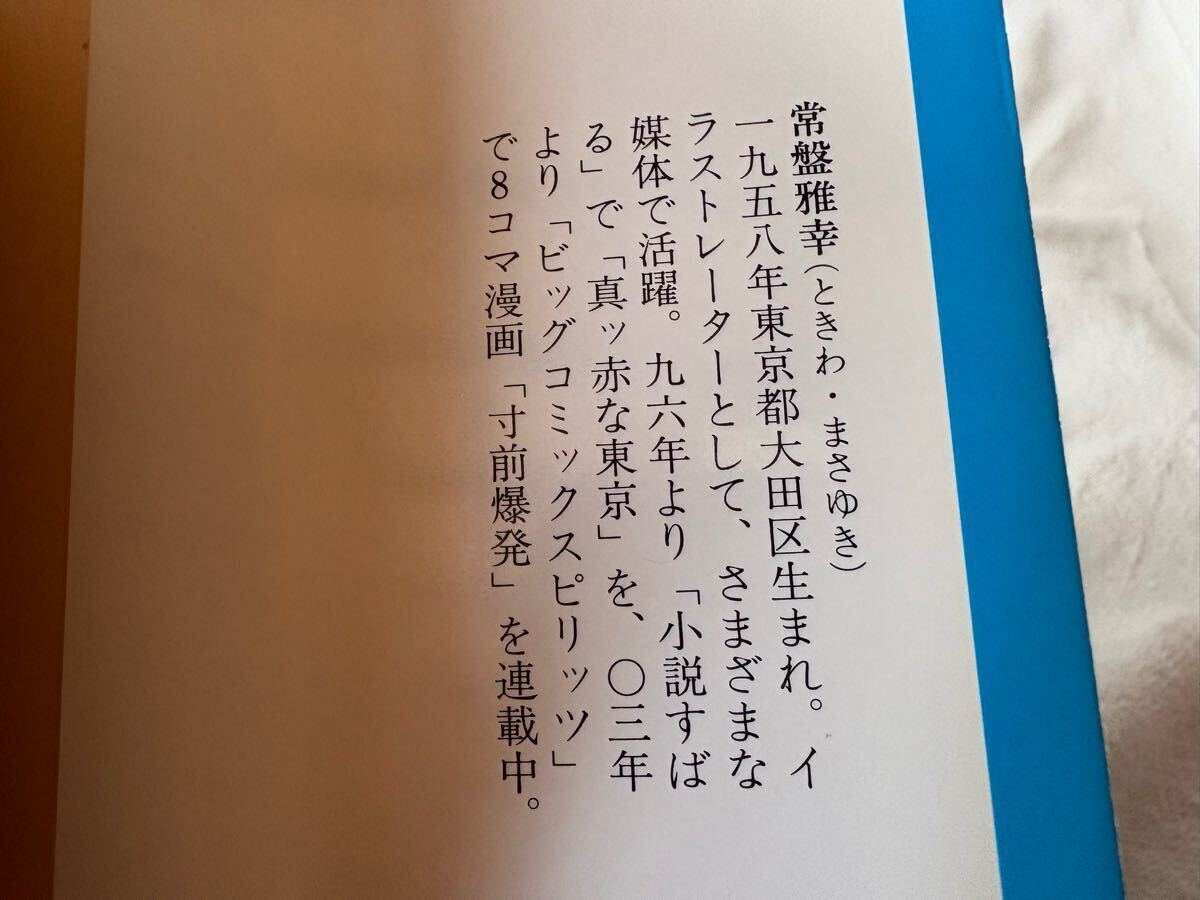 常盤雅幸(ときわ・まさゆき)
一九五八年東京都大田区生まれ。イ
ラストレーターとして、さまざまな
媒体で活躍。九六年より「小説すば
る」で「真ッ赤な東京」を、〇三年
より「ビッグコミックスピリッツ」
で8コマ漫画「寸前爆発」を連載中。